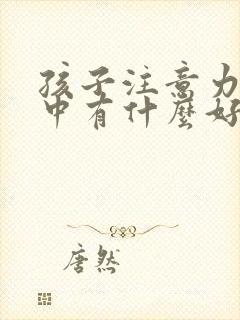 孩子注意力
中有什麼好
唐然